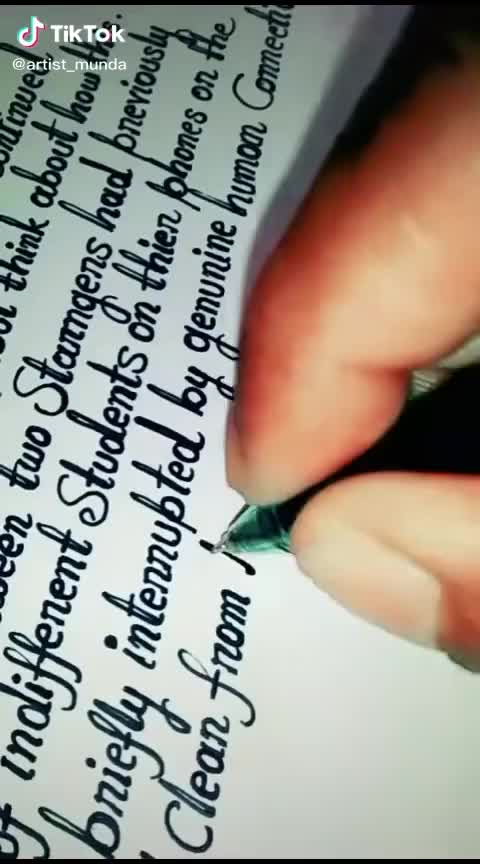 TikTok
@artist_munda
ontinued
think about how this.
ween two Starngens had pneviously
of indiffenent Students on thien phones on the
bniefly intennupted by genunine human Connecti
Clean fnom